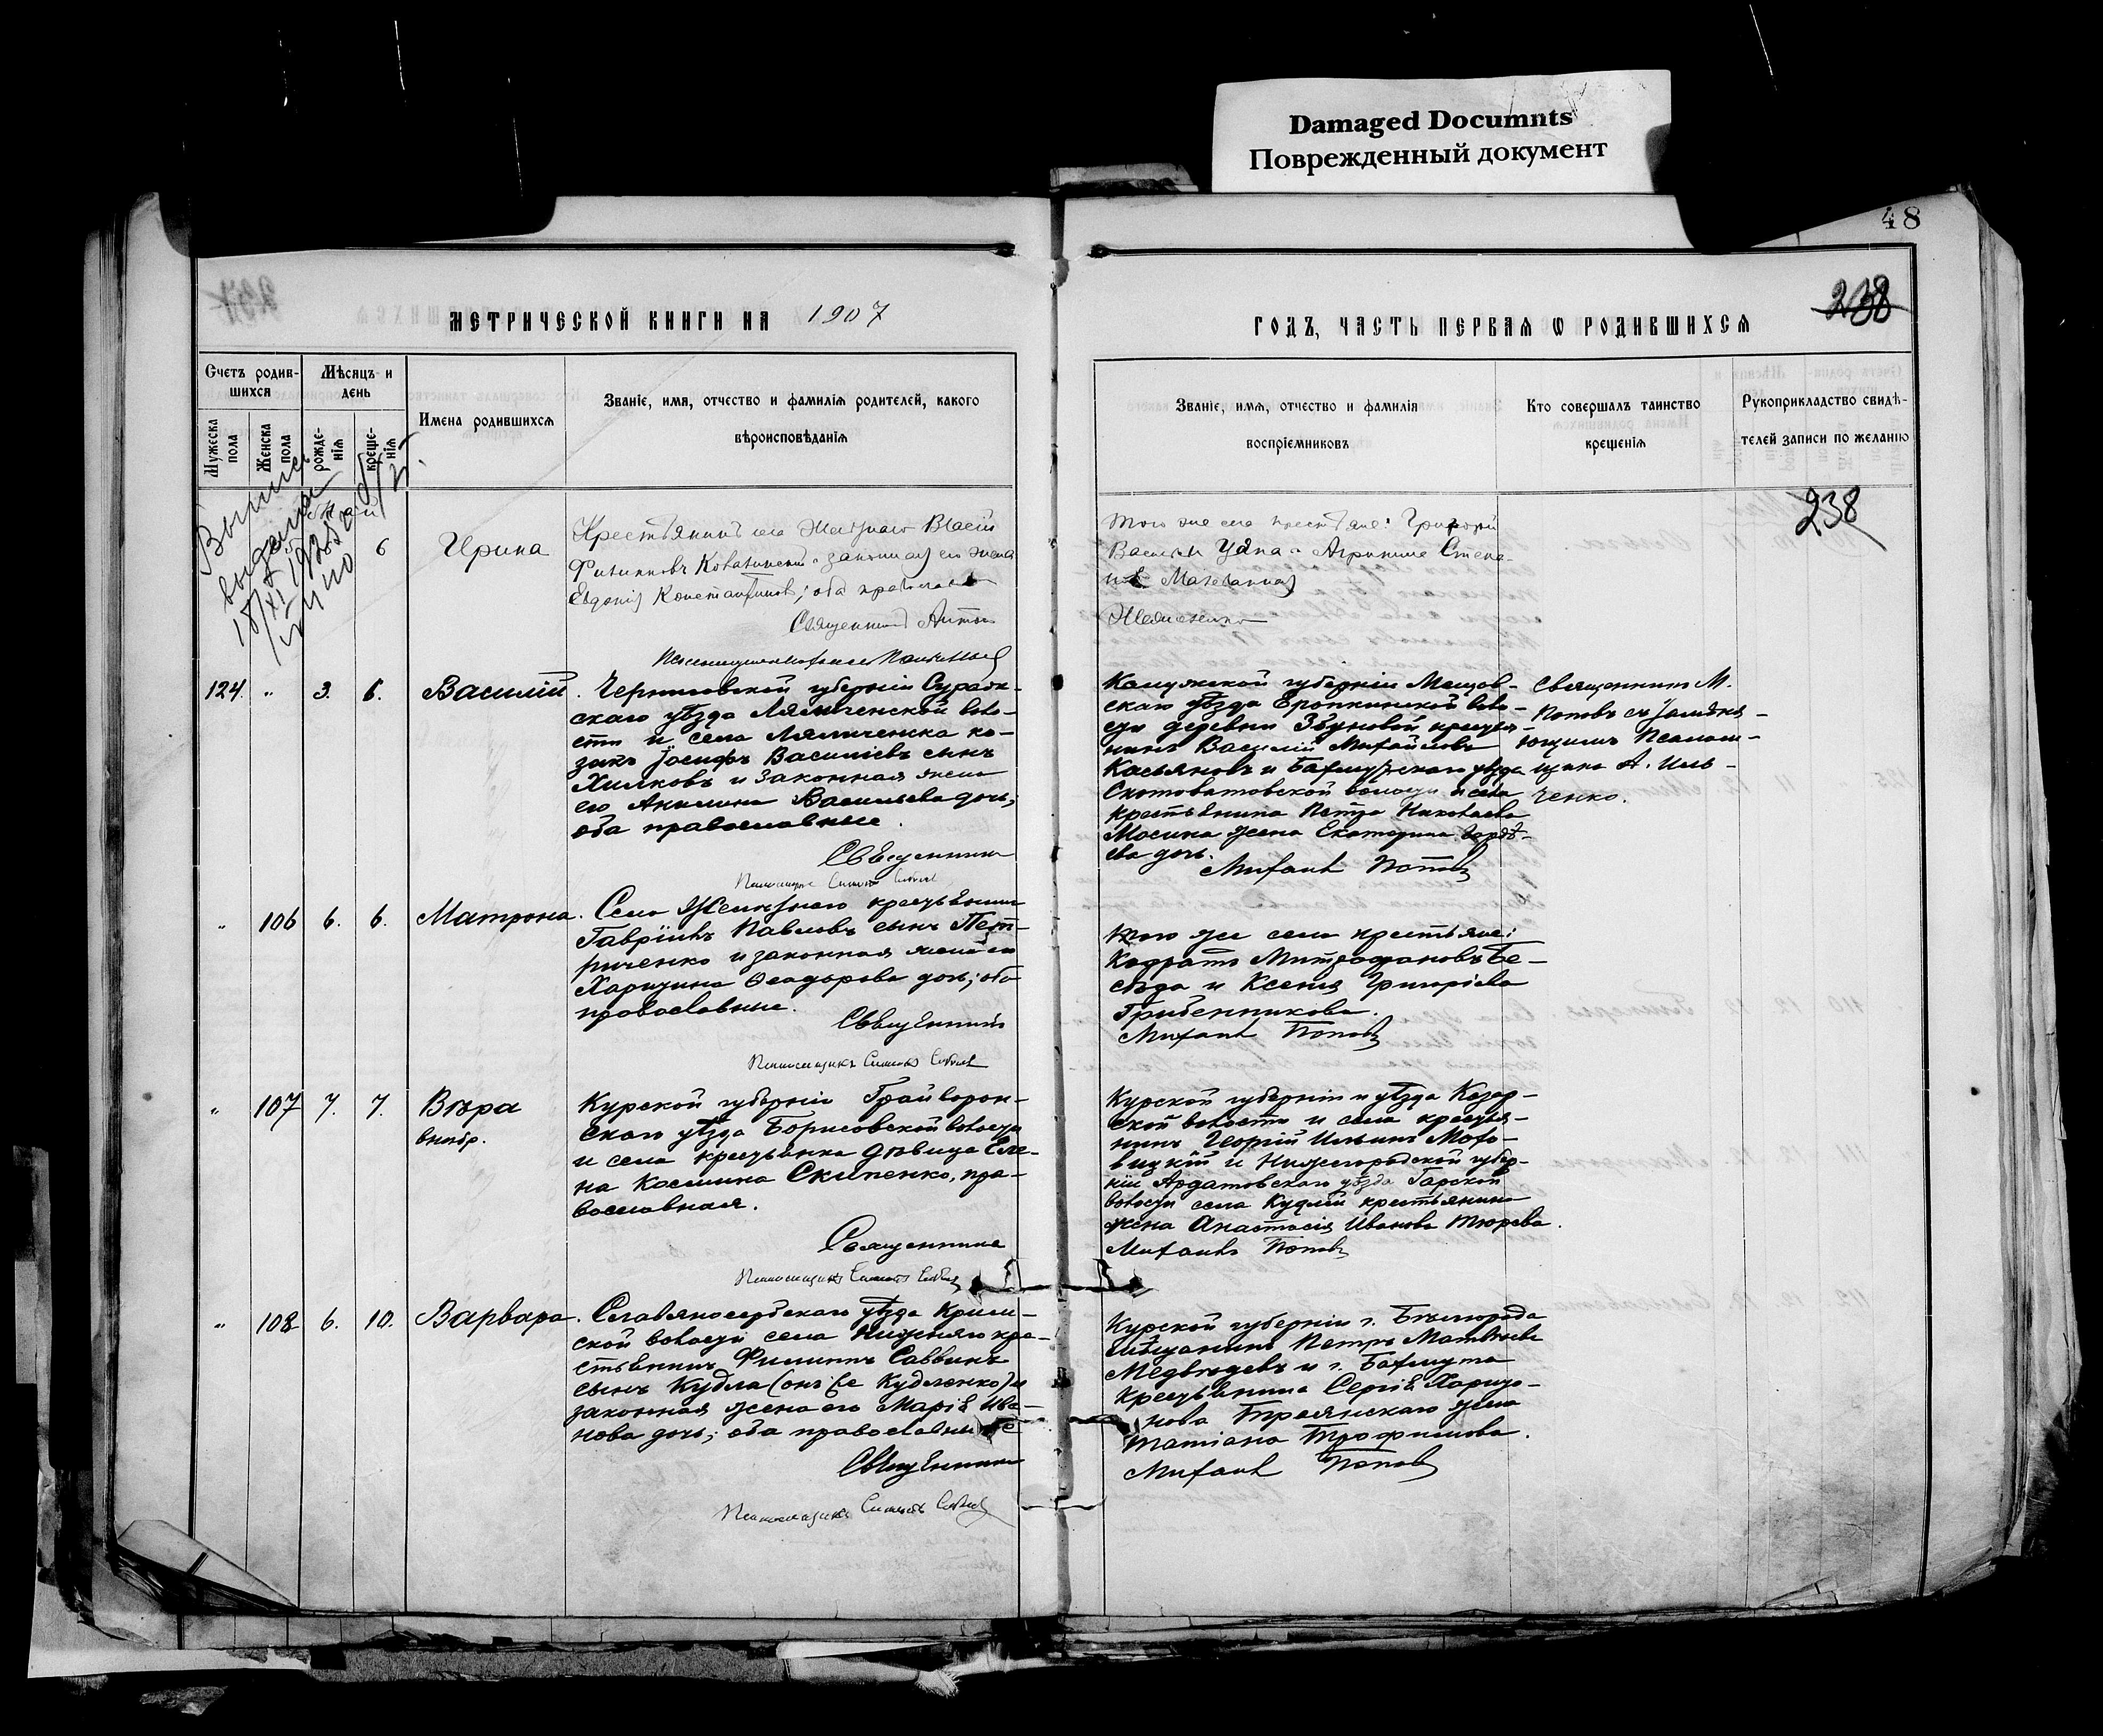 Damaged Documnts
Поврежденный документ
48
238
МЕТРИЧЕСКОЙ КНИГИ НА 1907
ГОДЪ, ЧАСТЬ ПЕРВАЯ Ѡ РОДИВШИХСЯ
Счетъ родив-
шихся
Мѣсяцъ и
день
Мужеска
пола
Женска
пола
рожде-
нія
креще-
нія
Имена родившихся
Званіе, имя, отчество и фамилія родителей, какого
вѣроисповѣданія
Званіе, имя, отчество и фамилія
воспріемниковъ
Кто совершалъ таинство
крещенія
Рукоприкладство свидѣ-
телей записи по желанію
238
Выпись
выдана
6
Ирина
Крестьянинъ села
законная его жена
Евдокія Константинова; оба
Священникъ
Того же села крестьяне: Григорій
124. " 3. 6. Василій.
Черниговской губерніи Сураж-
скаго уѣзда Лялическ­ой воло-
сти и села ко-
закъ Іосифъ Василіевъ сынъ
Хилковъ и законная жена
его Акилина Васильева дочь;
оба православные.
Священникъ
Калужской губерніи Мещов-
скаго уѣзда Еропкинской воло-
сти деревни крестья-
нинъ Василій Михайловъ
Касьяновъ и Бахмутскаго уѣзда
Скотоватовской волости и села
крестьянина Петра Николаева
Мосина жена Екатерина Гордѣ-
ева дочь.
Михаилъ Поповъ
Священникъ М.
Поповъ съ
ющимъ Псалом-
щика А. Иль-
ченко.
" 106 6. 6. Матрона.
Села Желѣзнаго крестьянинъ
Гавріилъ Павловъ сынъ Пет-
риченко и законная жена его
Харитина Ѳеодорова дочь; оба
православные.
Священникъ
Псаломщикъ Симеонъ
Того же села крестьяне:
Кодратъ Митрофановъ Бе-
сѣда и Ксенія Григоріева
Грибенникова.
Михаилъ Поповъ
" 107 7. 7. Вѣра
внѣбр.
Курской губерніи Грайворон-
скаго уѣзда Борисовской волости
и села крестьянка дѣвица Еле-
на Космина Скипенко, пра-
вославная.
Священникъ
Псаломщикъ Симеонъ
Курской губерніи и уѣзда
ской волости и села крестья-
нинъ Георгій Ильинъ
и Нижегородской губер-
ніи Ардатовскаго уѣзда Гарской
волости села крестьянина
жена Анастасія Иванова Тюрева.
Михаилъ Поповъ
" 108 6. 10. Варвара.
Славяносербскаго уѣзда Крим-
ской волости села Нижняго кре-
стьянинъ Филиппъ Саввинъ
сынъ Кудла (онъ же Кудленко) и
законная жена его Марія Ива-
нова дочь; оба православные
Священникъ
Псаломщикъ Симеонъ
Курской губерніи г. Бѣлгорода
мѣщанинъ Петръ Матвѣевъ
Медвѣдевъ и г. Бахмута
крестьянина Сергія Харито-
нова жена
Татіана Трофимова.
Михаилъ Поповъ